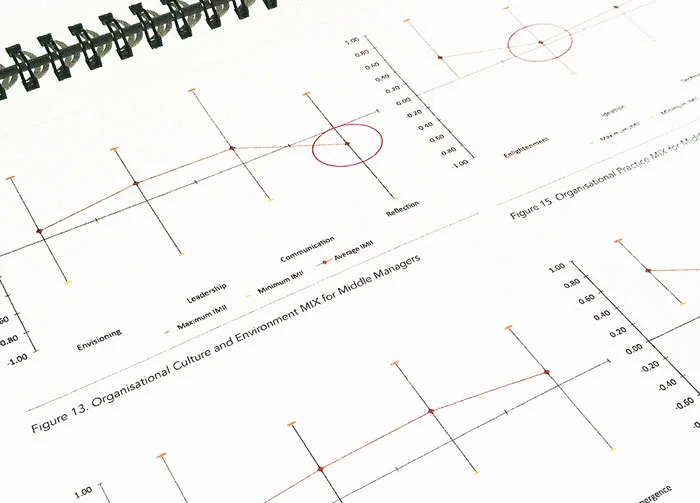 1.00
0.80
0.60
0.40
0.20
0.00
-0.20
-0.40
-0.60
-0.80
-1.00
Enlightenment
Ideation
Maximum IMII
Minimum
Figure 15 Organisational Practice MIX for
60
0.80
-1.00
Envisioning
Leadership
Communication
Reflection
Maximum IMII
Minimum IMII
Average IMII
Figure 13. Organisational Culture and Environment MIX for Middle Managers
1.00
1.00
0.80
0.60
0.40
0.20
0.00
-0.20
-0.40
-0.60
mergence